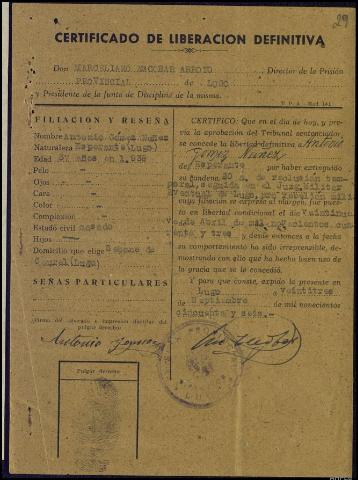 29
CERTIFICADO DE LIBERACIÓN DEFINITIVA
Don MARCELIANO ESCOBAR ARROYO Director de la Prisión
PROVINCIAL de LUGO
y Presidente de la Junta de Disciplina de la misma.
FILIACION Y RESEÑA
Nombre Antonio Gómez Nuñez
Naturaleza Esperante (Lugo)
Edad 27 años en 1.938
Pelo
Ojos
Cara
Color
Complexión
Estado civil casado
Hijos
Domicilio que elige
(Lugo)
SEÑAS PARTICULARES
CERTIFICO: Que en el día de hoy, y pre-
via aprobación del Tribunal sentenciador
se concede la libertad definitiva Antonio
Gómez Nuñez
de Esperante por haber extinguido
su condena 20 a. de reclusión tem-
poral, seguida en el Juzg. Militar
Eventual de Lugo, por rebelión mili.
cuya filiacion se expresa al margen, fué pues-
to en libertad condicional el día Veintinue-
ve de Abril de mil novecientos cua-
renta y tres y desde entonces a la fecha
su comportamiento ha sido irreprensible, de-
mostrando con ello que ha hecho buen uso de
la gracia que se le concedió.
Y para que conste, expido la presente en
Lugo a Veintitres
de Septiembre de mil novecientos
cincuenta y seis.-
Firma del liberado e impresión dactilar del
pulgar derecho:
Antonio Gomez
Pulgar derecho